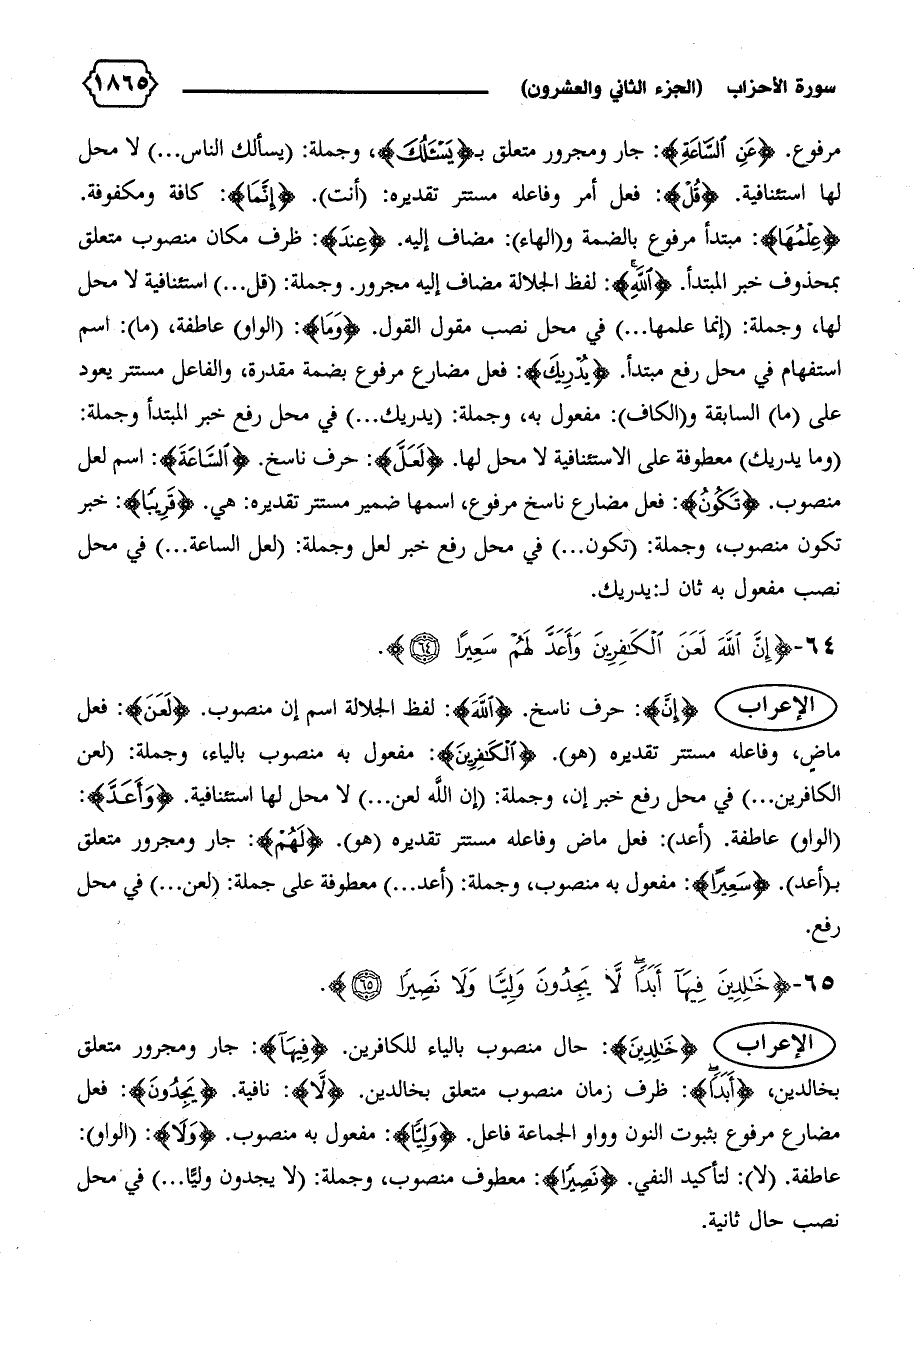 سورة الأحزاب (الجزء الثاني والعشرون) ١٨٦٥
مرفوع. ﴿عَنِ ٱلسَّاعَةِ﴾: جار ومجرور متعلق بـ﴿يَسْـَٔلُكَ﴾، وجملة: (يسألك الناس...) لا محل
لها استئنافية. ﴿قُلْ﴾: فعل أمر وفاعله مستتر تقديره: (أنت). ﴿إِنَّمَا﴾: كافة ومكفوفة.
﴿عِلْمُهَا﴾: مبتدأ مرفوع بالضمة و(الهاء): مضاف إليه. ﴿عِندَ﴾: ظرف مكان منصوب متعلق
بمحذوف خبر المبتدأ. ﴿ٱللَّهِۚ﴾: لفظ الجلالة مضاف إليه مجرور. وجملة: (قل...) استئنافية لا محل
لها، وجملة: (إنما علمها...) في محل نصب مقول القول. ﴿وَمَا﴾: (الواو) عاطفة، (ما): اسم
استفهام في محل رفع مبتدأ. ﴿يُدْرِيكَ﴾: فعل مضارع مرفوع بضمة مقدرة، والفاعل مستتر يعود
على (ما) السابقة و(الكاف): مفعول به، وجملة: (يدريك...) في محل رفع خبر المبتدأ وجملة:
(وما يدريك) معطوفة على الاستئنافية لا محل لها. ﴿لَعَلَّ﴾: حرف ناسخ. ﴿ٱلسَّاعَةَ﴾: اسم لعل
منصوب. ﴿تَكُونُ﴾: فعل مضارع ناسخ مرفوع، اسمها ضمير مستتر تقديره: هي. ﴿قَرِيبًا﴾: خبر
تكون منصوب، وجملة: (تكون...) في محل رفع خبر لعل وجملة: (لعل الساعة...) في محل
نصب مفعول به ثان لـ:يدريك.
٦٤-﴿إِنَّ ٱللَّهَ لَعَنَ ٱلْكَـٰفِرِينَ وَأَعَدَّ لَهُمْ سَعِيرًا ٦٤﴾.
الإعراب ﴿إِنَّ﴾: حرف ناسخ. ﴿ٱللَّهَ﴾: لفظ الجلالة اسم إن منصوب. ﴿لَعَنَ﴾: فعل
ماضٍ، وفاعله مستتر تقديره (هو). ﴿ٱلْكَـٰفِرِينَ﴾: مفعول به منصوب بالياء، وجملة: (لعن
الكافرين...) في محل رفع خبر إن، وجملة: (إن اللَّه لعن...) لا محل لها استئنافية. ﴿وَأَعَدَّ﴾:
(الواو) عاطفة. (أعد): فعل ماض وفاعله مستتر تقديره (هو). ﴿لَهُمْ﴾: جار ومجرور متعلق
بـ(أعد). ﴿سَعِيرًا﴾: مفعول به منصوب، وجملة: (أعد...) معطوفة على جملة: (لعن...) في محل
رفع.
٦٥-﴿خَـٰلِدِينَ فِيهَآ أَبَدًاۖ لَّا يَجِدُونَ وَلِيًّا وَلَا نَصِيرًا ٦٥﴾.
الإعراب ﴿خَـٰلِدِينَ﴾: حال منصوب بالياء للكافرين. ﴿فِيهَآ﴾: جار ومجرور متعلق
بخالدين، ﴿أَبَدًاۖ﴾: ظرف زمان منصوب متعلق بخالدين. ﴿لَّا﴾: نافية. ﴿يَجِدُونَ﴾: فعل
مضارع مرفوع بثبوت النون وواو الجماعة فاعل. ﴿وَلِيًّا﴾: مفعول به منصوب. ﴿وَلَا﴾: (الواو):
عاطفة. (لا): لتأكيد النفي. ﴿نَصِيرًا﴾: معطوف منصوب، وجملة: (لا يجدون وليًّا...) في محل
نصب حال ثانية.